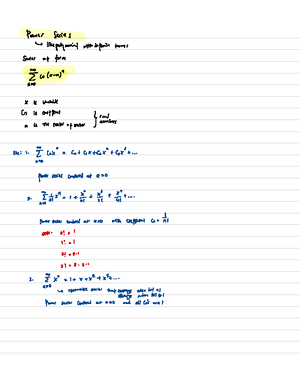 Power Series
↳ like polynomial with infinite terms
Series of form
∞ Σ n=0 Cn (x-a)^n
x is variable
Cn is coefficient
a is the center of series
} real numbers
Ex: 1. ∞ Σ n=0 Cn x^n = C0 + C1x + C2x² + C3x³ + ...
power series centered at a=0
2. ∞ Σ n=0 1/n! x^n = 1 + x + x²/2! + x³/3! + ...
Power series centered at a=0 with coefficient Cn = 1/n!
0! = 1
1! = 1
2! = 2·1
3! = 3·2·1
3. ∞ Σ n=0 x^n = 1 + x + x² + x³ + ...
↳ geometric series that converge when |x|<1
diverge when |x|≥1
Power series centered at a=0 and all Cn are 1